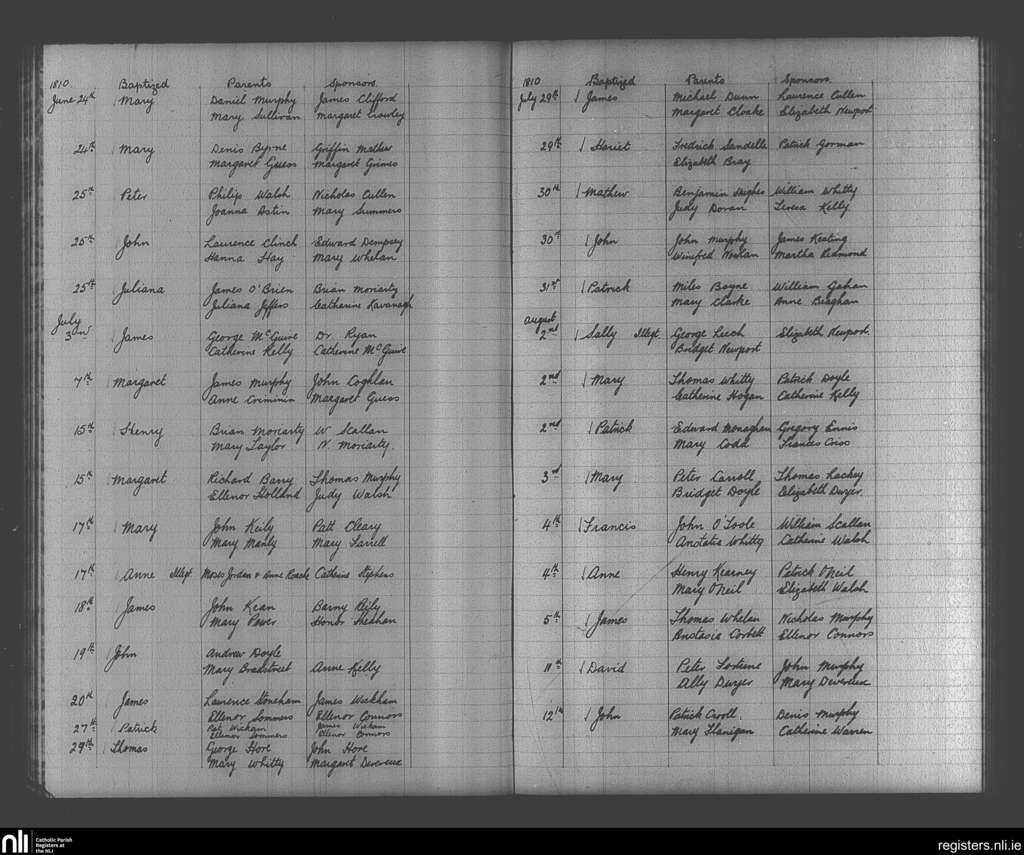 1810 Baptized Parents Sponsors
June 24th Mary Daniel Murphy James Clifford
Mary Sullivan Margaret Crowley
24th Mary Denis Byrne Griffin Mathew
Margaret Guess Margaret Grimes
25th Peter Philip Walsh Nicholas Cullen
Joanna Astin Mary Summers
25th John Laurence Clinch Edward Dempsey
Hanna Hay Mary Whelan
25th Juliana James O'Brien Brian Moriarty
Juliana Jeffers Catherine Kavanagh
July
3rd James George McGuire Dr Ryan
Catherine Kelly Catherine McGuire
7th Margaret James Murphy John Coghlan
Anne Criminin Margaret Guess
15th Henry Brian Moriarty W Scallan
Mary Taylor N. Moriarty.
15th Margaret Richard Barry Thomas Murphy
Ellenor Holland Judy Walsh
17th Mary John Keily Patt Cleary
Mary Manly Mary Farrell
17th Anne Illegt Moses Jordan + Anne Roach Catherine Stephens
18th James John Kean Barny Reily
Mary Power Honor Sheahan
19th John Andrew Doyle
Mary Bradstreet Anne Kelly
20th James Laurence Stoneham James Wickham
Ellenor Sommers Ellenor Connors
27th Patrick Pat Wickam James Wickam
Ellenor Sommers Ellenor Connors
29th Thomas George Hore John Hore
Mary Whitty Margaret Devereux
1810 Baptized Parents Sponsors
July 29th James Michael Dunn Laurence Cullen
Margaret Cloake Elizabeth Newport
29th Hariet Fredrick Sandelle Patrick Gorman
Elizabeth Bray
30th Mathew Benjamin Hughes William Whitty
Judy Doran Teresa Kelly
30th John John Murphy James Keating
Winefred Nowlan Martha Redmond
31st Patrick Miles Boyne William Gahan
Mary Clarke Anne Beaghan
August
2nd Sally Illegt. George Leech Elizabeth Newport
Bridget Newport
2nd Mary Thomas Whitty Patrick Doyle
Catherine Hogan Catherine Kelly
2nd Patrick Edward Monaghan Gregory Ennis
Mary Codd Frances Criss
3rd Mary Peter Carroll Thomas Lackey
Bridget Doyle Elizabeth Dwyer
4th Francis John O'Toole William Scallan
Anotatia Whitty Catherine Walsh
4th Anne Henry Kearney Patrick O'Neil
Mary O'Neil Elizabeth Walsh
5th James Thomas Whelan Nicholas Murphy
Anstasia Corbett Ellenor Connors
11th David Peter Fortune John Murphy
Ally Dwyer Mary Devereux
12th John Patrick Croll. Denis Murphy
Mary Flanigan Catherine Warren
nli Catholic Parish
Registers at
the NLI
registers.nli.ie